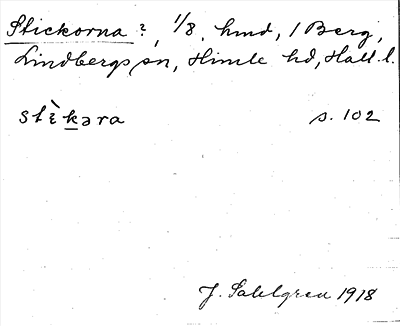 Stickorna?, 1/8, hmd, 1 Berg,
Lindbergs sn, Himle hd, Hall. l.
stìkəra s. 102
J. Sahlgren 1918